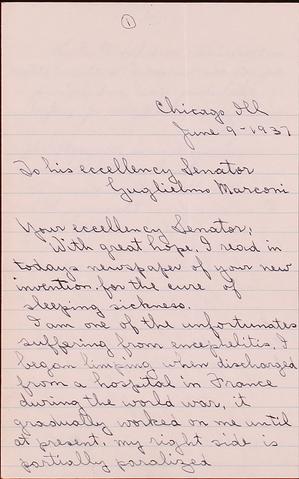 1
Chicago Ill
June 9-1937
To his eccellency Senator
Guglielmo Marconi
Your eccellency Senator;
With great hope, I read in
todays newspaper of your new
invention, for the cure of
sleeping sickness.
I am one of the unfortunates
suffering from encephelitis, I
began limping when discharged
from a hospital in France
during the world war, it
gradually worked on me until
at present, my right side is
partially paralized